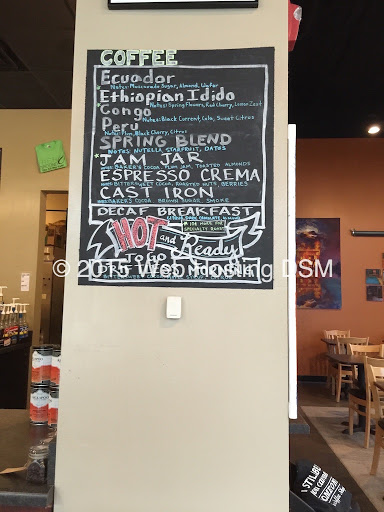 COFFEE
Ecuador
Notes: Muscovado Sugar, Almond, Wafer
Ethiopian Idido
Notes: Spring Flowers, Red Cherry, Lemon Zest
Congo
Notes: Black Currant, Cola, Sweet Citrus
Peru
Notes: Plum, Black Cherry, Citrus
SPRING BLEND
NOTES: NUTELLA, STARFRUIT, DATES
*JAM JAR
NOTES: BAKER'S COCOA, PLUM JAM, TOASTED ALMONDS
ESPRESSO CREMA
NOTES: BITTERSWEET COCOA, ROASTED NUTS, BERRIES
CAST IRON
NOTES: BAKER'S COCOA, BROWN SUGAR, SMOKE
DECAF BREAKFAST
HOT and Ready
TO GO
© 2015 Web Hosting DSM